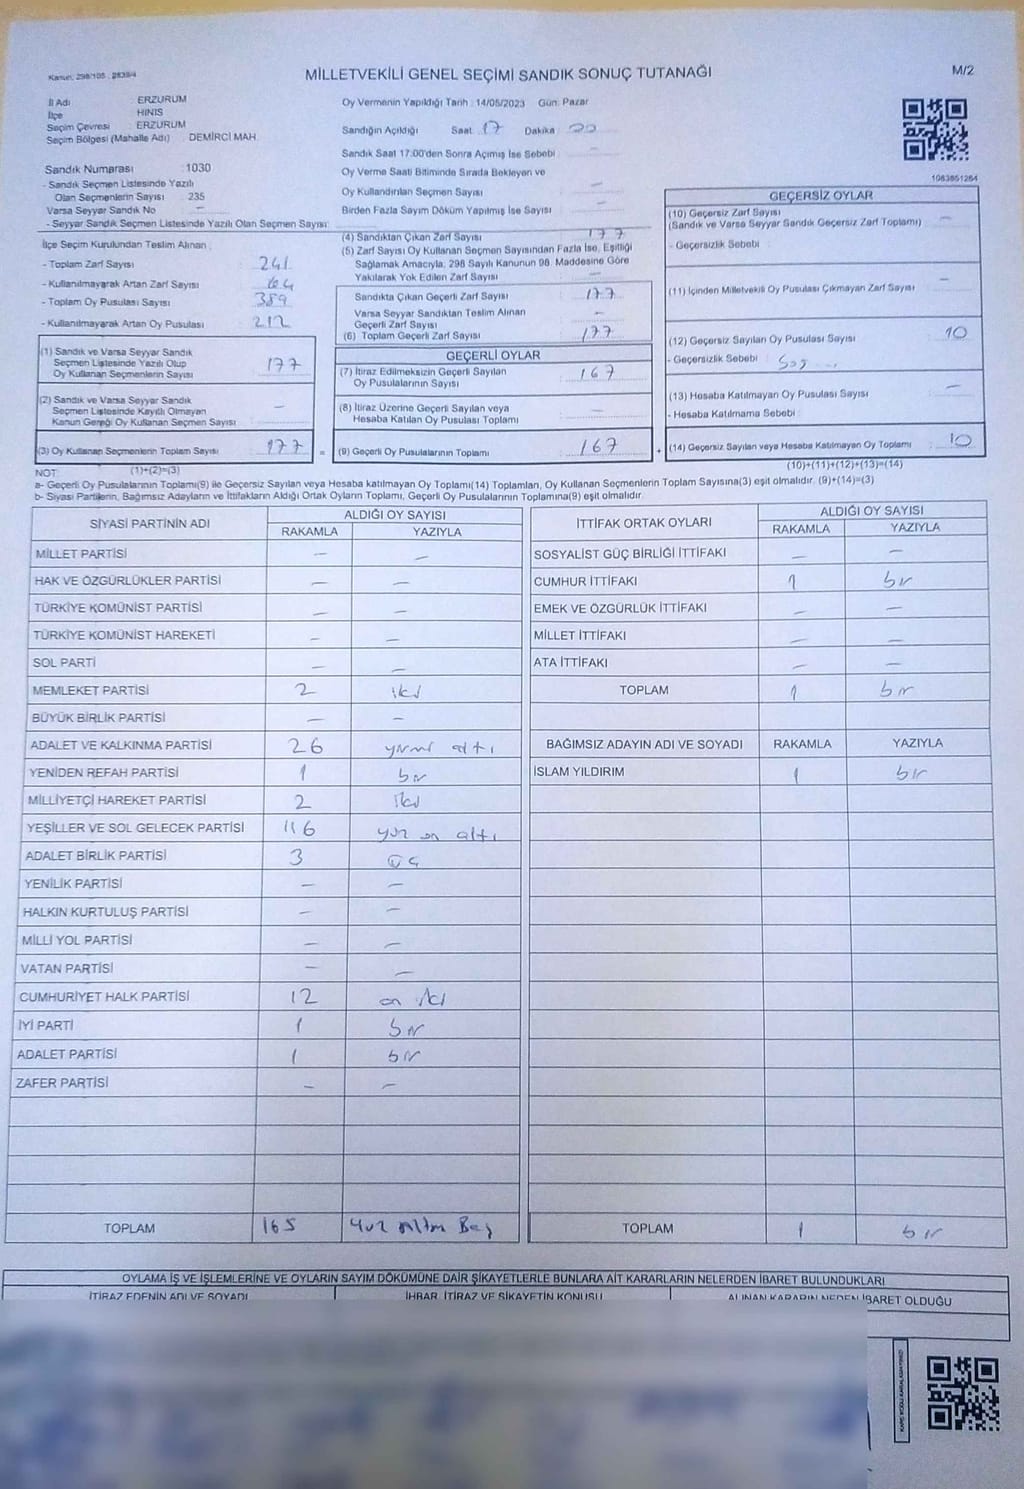 Kanun: 298/105, 2839/4
MİLLETVEKİLİ GENEL SEÇİMİ SANDIK SONUÇ TUTANAĞI
M/2
İl Adı ERZURUM
İlçe HINIS
Seçim Çevresi : ERZURUM
Seçim Bölgesi (Mahalle Adı) : DEMİRCİ MAH.
Sandık Numarası :1030
- Sandık Seçmen Listesinde Yazılı
Olan Seçmenlerin Sayısı : 235
Varsa Seyyar Sandık No –
- Seyyar Sandık Seçmen Listesinde Yazılı Olan Seçmen Sayısı:
Oy Vermenin Yapıldığı Tarih : 14/05/2023 Gün: Pazar
Sandığın Açıldığı Saat: 17 Dakika
Sandık Saat 17:00'den Sonra Açılmış İse Sebebi : –
Oy Verme Saati Bitiminde Sırada Bekleyen ve
Oy Kullandırılan Seçmen Sayısı : –
Birden Fazla Sayım Döküm Yapılmış İse Sayısı : –
1083851264
İlçe Seçim Kurulundan Teslim Alınan :
- Toplam Zarf Sayısı : 241
- Kullanılmayarak Artan Zarf Sayısı : 64
- Toplam Oy Pusulası Sayısı : 389
- Kullanılmayarak Artan Oy Pusulası : 212
(1) Sandık ve Varsa Seyyar Sandık
Seçmen Listesinde Yazılı Olup
Oy Kullanan Seçmenlerin Sayısı : 177
(2) Sandık ve Varsa Seyyar Sandık
Seçmen Listesinde Kayıtlı Olmayan
Kanun Gereği Oy Kullanan Seçmen Sayısı : –
(3) Oy Kullanan Seçmenlerin Toplam Sayısı : 177
(4) Sandıktan Çıkan Zarf Sayısı : 177
(5) Zarf Sayısı Oy Kullanan Seçmen Sayısından Fazla İse, Eşitliği
Sağlamak Amacıyla; 298 Sayılı Kanunun 98. Maddesine Göre
Yakılarak Yok Edilen Zarf Sayısı : –
Sandıkta Çıkan Geçerli Zarf Sayısı : 177
Varsa Seyyar Sandıktan Teslim Alınan
Geçerli Zarf Sayısı : –
(6) Toplam Geçerli Zarf Sayısı : 177
GEÇERLİ OYLAR
(7) İtiraz Edilmeksizin Geçerli Sayılan
Oy Pusulalarının Sayısı : 167
(8) İtiraz Üzerine Geçerli Sayılan veya
Hesaba Katılan Oy Pusulası Toplamı : –
= (9) Geçerli Oy Pusulalarının Toplamı : 167
GEÇERSİZ OYLAR
(10) Geçersiz Zarf Sayısı
(Sandık ve Varsa Seyyar Sandık Geçersiz Zarf Toplamı) : –
- Geçersizlik Sebebi
(11) İçinden Milletvekili Oy Pusulası Çıkmayan Zarf Sayısı : –
(12) Geçersiz Sayılan Oy Pusulası Sayısı : 10
- Geçersizlik Sebebi :
(13) Hesaba Katılmayan Oy Pusulası Sayısı : –
- Hesaba Katılmama Sebebi :
+ (14) Geçersiz Sayılan veya Hesaba Katılmayan Oy Toplamı : 10
NOT: (1)+(2)=(3)
(10)+(11)+(12)+(13)=(14)
a- Geçerli Oy Pusulalarının Toplamı(9) ile Geçersiz Sayılan veya Hesaba katılmayan Oy Toplamı(14) Toplamları, Oy Kullanan Seçmenlerin Toplam Sayısına(3) eşit olmalıdır. (9)+(14)=(3)
b- Siyasi Partilerin, Bağımsız Adayların ve İttifakların Aldığı Ortak Oyların Toplamı, Geçerli Oy Pusulalarının Toplamına(9) eşit olmalıdır.
SİYASİ PARTİNİN ADI ALDIĞI OY SAYISI
RAKAMLA YAZIYLA
MİLLET PARTİSİ – –
HAK VE ÖZGÜRLÜKLER PARTİSİ – –
TÜRKİYE KOMÜNİST PARTİSİ – –
TÜRKİYE KOMÜNİST HAREKETİ – –
SOL PARTİ – –
MEMLEKET PARTİSİ 2 iki
BÜYÜK BİRLİK PARTİSİ – –
ADALET VE KALKINMA PARTİSİ 26 yirmi altı
YENİDEN REFAH PARTİSİ 1 bir
MİLLİYETÇİ HAREKET PARTİSİ 2 iki
YEŞİLLER VE SOL GELECEK PARTİSİ 116 yüz on altı
ADALET BİRLİK PARTİSİ 3 üç
YENİLİK PARTİSİ – –
HALKIN KURTULUŞ PARTİSİ – –
MİLLİ YOL PARTİSİ – –
VATAN PARTİSİ – –
CUMHURİYET HALK PARTİSİ 12 on iki
İYİ PARTİ 1 bir
ADALET PARTİSİ 1 bir
ZAFER PARTİSİ – –
TOPLAM 165 yüz altmış Beş
İTTİFAK ORTAK OYLARI ALDIĞI OY SAYISI
RAKAMLA YAZIYLA
SOSYALİST GÜÇ BİRLİĞİ İTTİFAKI – –
CUMHUR İTTİFAKI 1 bir
EMEK VE ÖZGÜRLÜK İTTİFAKI – –
MİLLET İTTİFAKI – –
ATA İTTİFAKI – –
TOPLAM 1 bir
BAĞIMSIZ ADAYIN ADI VE SOYADI RAKAMLA YAZIYLA
İSLAM YILDIRIM 1 bir
TOPLAM 1 bir
OYLAMA İŞ VE İŞLEMLERİNE VE OYLARIN SAYIM DÖKÜMÜNE DAİR ŞİKAYETLERLE BUNLARA AİT KARARLARIN NELERDEN İBARET BULUNDUKLARI
İTİRAZ EDENİN ADI VE SOYADI İHBAR, İTİRAZ VE ŞİKAYETİN KONUSU ALINAN KARARIN NEDEN İBARET OLDUĞU